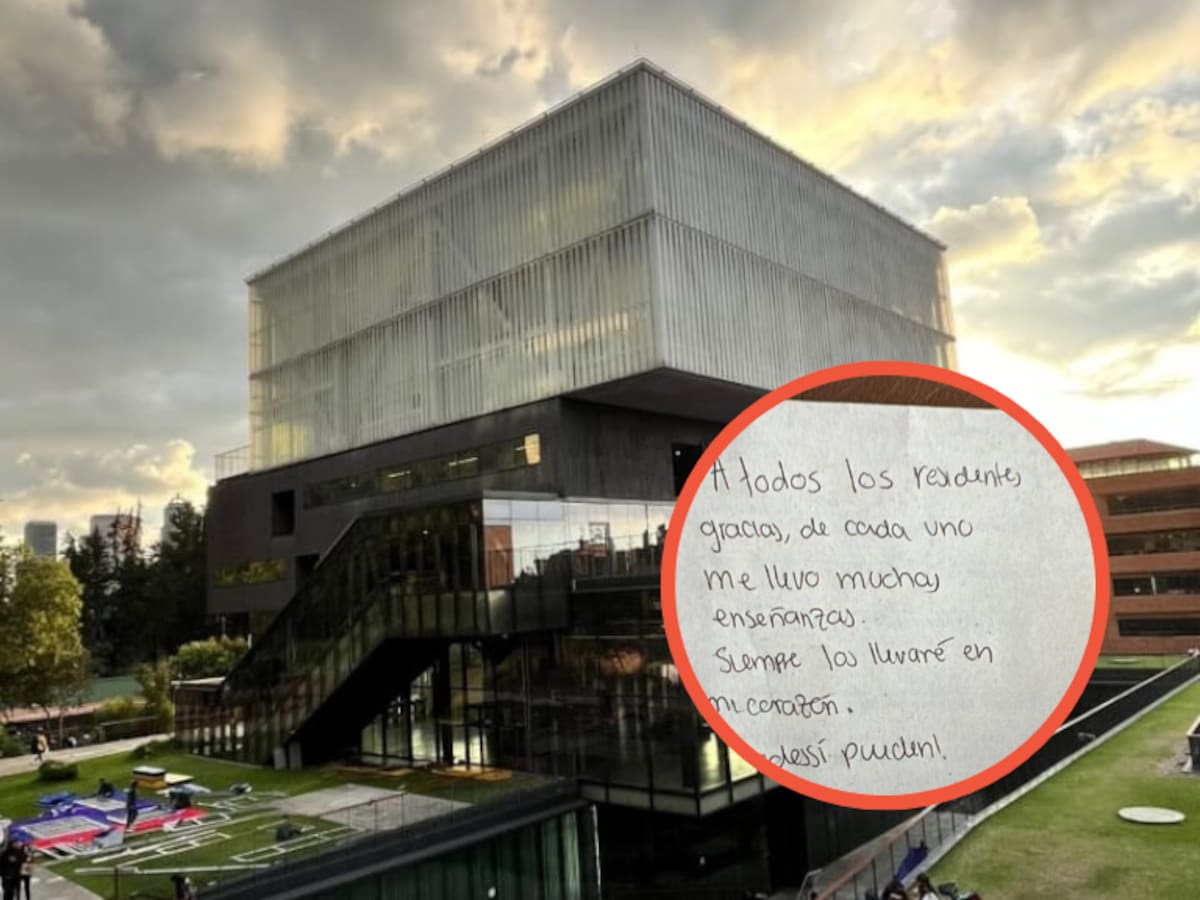 A todos los residentes
gracias, de cada uno
me llevo muchas
enseñanzas.
Siempre los llevaré en
mi corazón.
sí pueden!